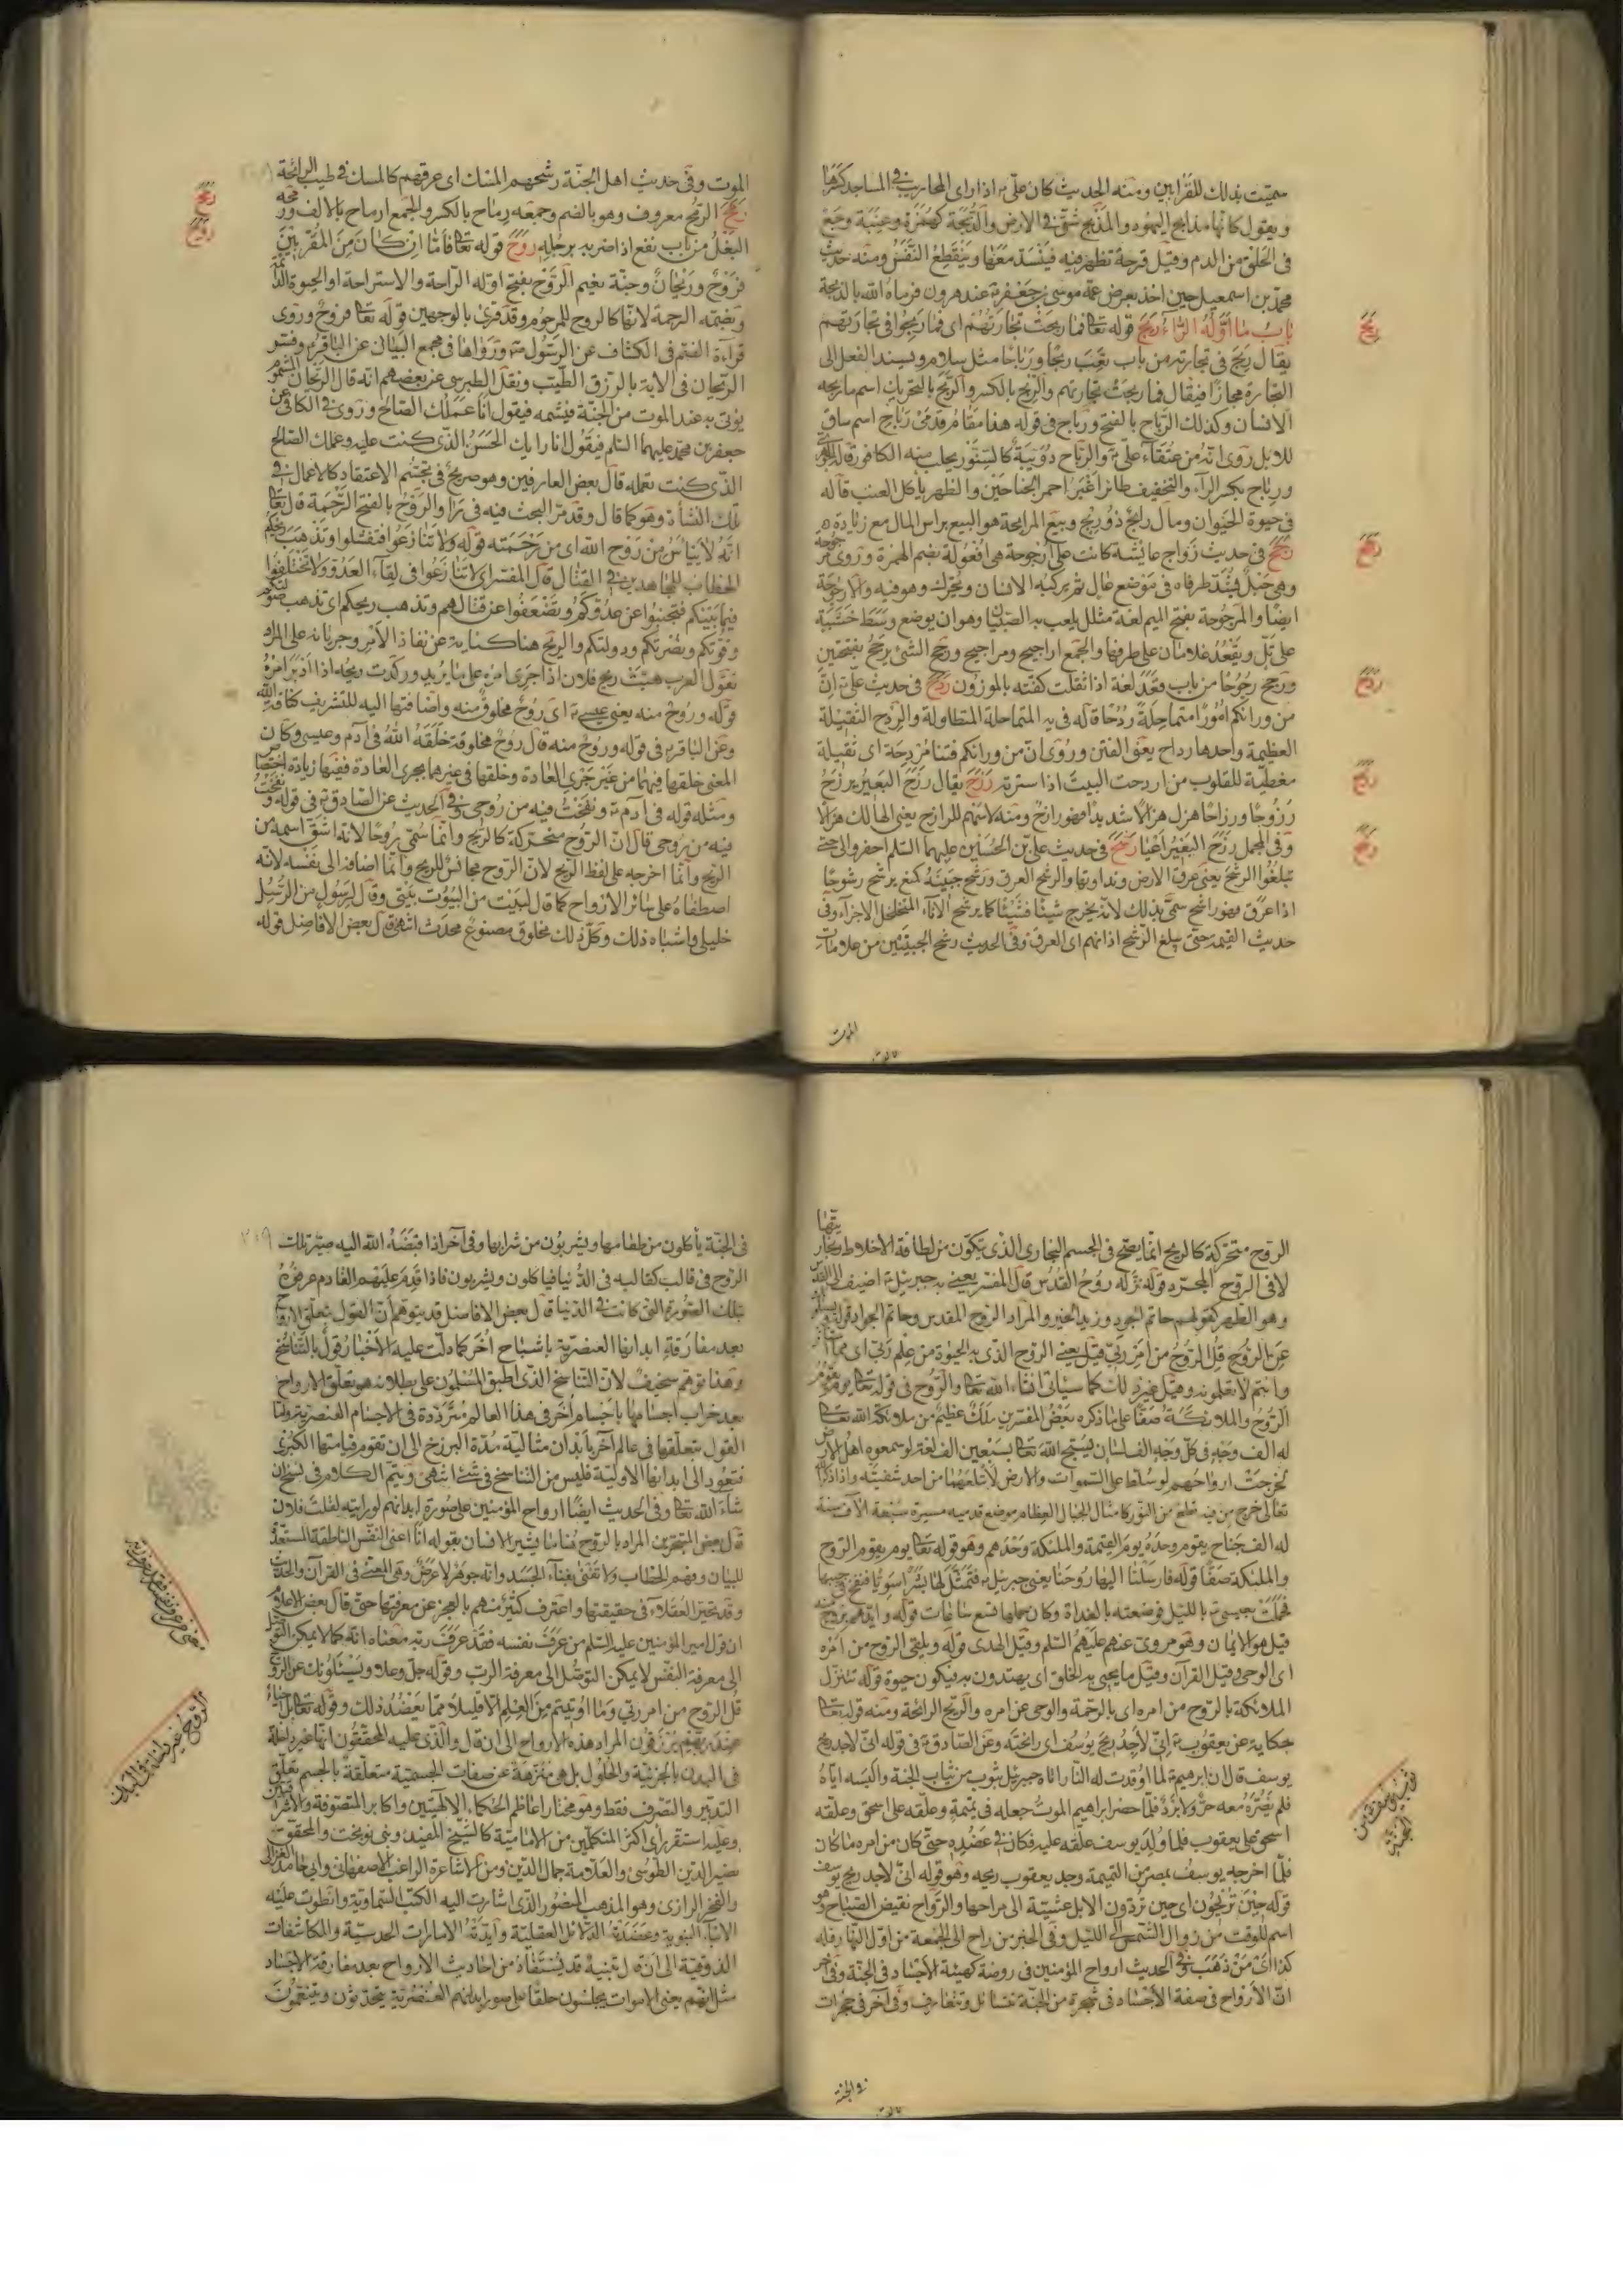 سميت بذلك للقرابين ومنه الحديث كان علىّ اذا راى المحاريب فى المساجد كسرها
ويقول كانها مذابح اليهود والمذبح شق فى الارض والذبحة كهمزة وعنبة وجع
فى الحلق من الدم وقيل قرحة تظهر فيه فينسد معها وينقطع النفس ومنه حديث
محمد بن اسمعيل حين اخذ بعرض عمه موسى بن جعفر عند هرون فرماه الله بالذبحة
باب ما اوله الراء ربح قوله تعالى فما ربحت تجارتهم اى فما ربحوا فى تجارتهم
يقال ربح فى تجارته من باب تعب ربحا ورباحا مثل سلام ويسند الفعل الى
التجارة مجازا فيقال فما ربحت تجارتهم والربح بالكسر والربح بالتحريك اسم ما ربحه
الانسان وكذلك الرباح بالفتح ورباح فى قوله هذا مقام قدمى رباح اسم ساق
للابل روى انه من عتقاء علىّ والرباح دويبة كالسنور يجلب منه الكافور قاله
ورباح بكسر الراء والتخفيف طائر اغبر احمر الجناحين والظهر يأكل العنب قاله
فى حيوة الحيوان ومال رابح ذو ربح وبيع المرابحة هو البيع براس المال مع زيادة
رجح فى حديث زواج عايشة كانت على ارجوحة هى افعولة بضم الهمزة وروى مرجوحة
وهى حبل يشد طرفاه فى موضع عال ثم يركبه الانسان ويحرك وهو فيه والارجوحة
ايضا والمرجوحة بفتح الميم لغة مثال يلعب به الصبيان وهو ان يوضع وسط خشبة
على تل ويقعد غلامان على طرفها والجمع اراجيح ومراجيح ورجح الشئ يرجح بفتحتين
ورجح رجوحا من باب وقعد لغة اذا ثقلت كفته بالموزون ردح فى حديث علىّ انّ
من ورائكم امورا متماحلة ردحا قاله فى يه المتماحلة المتطاولة والردح الثقيلة
العظيمة واحدها رداح يعنى الفتن وروى انّ من ورائكم فتنا مردحة اى ثقيلة
مغطية للقلوب من اردحت البيت اذا سترته رزح يقال رزح البعير يرزح
رزوحا ورزاحا هزل هزالا شديدا فهو رازح ومنه لاسهم للرازح يعنى الهالك هزالا
وفى المجمل رزح البعير اعيا رشح فى حديث على بن الحسين عليهما السلم احفروا لى حتى
تبلغوا الرشح يعنى عرق الارض ونداوتها والرشح العرق ورشح جبينه كمنع يرشح رشوحا
اذا عرق فهو راشح سمى بذلك لانه يخرج شيئا فشيئا كما يرشح الاناء المتخلخل الاجزاء وفى
حديث القيمة حتى يبلغ الرشح اذانهم اى العرق وفى الحديث رشح الجبين من علامات
الموت
ربح
رجح
ردح
رزح
رشح
الموت وفى حديث اهل الجنة رشحهم المسك اى عرقهم كالمسك فى طيب الرائحة
رمح الرمح معروف وهو بالضم وجمعه رماح بالكسر والجمع ارماح بالالف ورمحه
البغل من باب نفع اذا ضربه برجله روح قوله تعالى فأمّا ان كان من المقربين
فروح وريحان وجنة نعيم الروح بفتح اوله الراحة والاستراحة او الحيوة الدائمة
وبضمه الرحمة لانها كالروح للمرحوم وقد قرئ بالوجهين قوله تعالى فروح وروى
قراءة الضم فى الكشاف عن الرسول ورواها فى مجمع البيان عن الباقر وفسر
الريحان فى الاية بالرزق الطيب ونقل الطبرسى عن بعضهم انه قال الريحان المشموم
يؤتى به عند الموت من الجنة فيشمه فيقول انا عملك الصالح وروى فى الكافى عن
جعفر بن محمد عليهما السلم فيقول انا رايك الحسن الذى كنت عليه وعملك الصالح
الذى كنت تعمله قال بعض العارفين وهو صريح فى تجسم الاعتقاد كالاعمال فى
تلك النشأة وهو كما قال وقد مر البحث فيه فى برا والروح بالفتح الرحمة قال تعالى
انه لا ييأس من روح الله اى من رحمته قوله ولا تنازعوا فتفشلوا وتذهب ريحكم
الخطاب للمجاهدين فى القتال قال المفسر اى لا تنازعوا فى لقاء العدو ولا تختلفوا
فيما بينكم فتجبنوا عن عدوكم وتضعفوا عن قتالهم وتذهب ريحكم اى تذهب صولتكم
وقوتكم ونصرتكم ودولتكم والريح هنا كناية عن نفاذ الامر وجريانه على المراد
تقول العرب هبت ريح فلان اذا جرى امره على ما يريد وركدت ريحه اذا ادبر امره
قوله وروح منه يعنى عيسى اى روح مخلوق منه واضافتها اليه للتشريف كناقة الله
وعن الباقر فى قوله وروح منه قال روح مخلوقة خلقه الله فى آدم وعيسى وكان
المعنى خلقها فيهما من غير جرى العادة وخلقها فى غيرهما بمجرى العادة ففيها زيادة اختصاص
ومثله قوله فى آدم ونفخت فيه من روحى وفى الحديث عن الصادق فى قوله ونفخت
فيه من روحى قال انّ الروح متحركة كالريح وانما سمى روحا لانه اشتق اسمه من
الريح وانما اخرجه على لفظ الريح لانّ الروح مجانس للريح وانما اضافه الى نفسه لانه
اصطفاه على سائر الارواح كما قال لبيت من البيوت بيتى وقال لرسول من الرسل
خليلى واشباه ذلك وكل ذلك مخلوق مصنوع محدث انتهى قال بعض الافاضل قوله
رمح
روح
الروح متحركة كالريح انما يصح فى الجسم البخارى الذى يتكون من لطافة الاخلاط وبخاريتها
لا فى الروح المجرد قوله نزله روح القدس قال المفسر يعنى به جبرئيل اضيف الى القدس
وهو الطهر كقولهم حاتم الجود وزيد الخير والمراد الروح المقدس وحاتم الجواد قوله يسئلونك
عن الروح قل الروح من امر ربى قيل يعنى الروح الذى به الحيوة من علم ربى اى مما استأثر
وانتم لا تعلمونه وقيل غير ذلك كما سيأتى انشاء الله تعالى والروح فى قوله تعالى يوم يقوم
الروح والملائكة صفا على ما ذكره بعض المفسرين ملك عظيم من ملائكة الله تعالى
له الف وجه فى كل وجه الف لسان يسبح الله تعالى بسبعين الف لغة لو سمعوه اهل الارض
لخرجت ارواحهم لو سلط على السموات والارض لابتلعهما من احد شفتيه واذا ذكر الله
تعالى خرج من فيه قطع من النور كامثال الجبال العظام موضع قدميه مسيرة سبعة الاف سنة
له الف جناح يقوم وحده يوم القيمة والملئكة وحدهم وهو قوله تعالى يوم يقوم الروح
والملئكة صفا قوله فارسلنا اليها روحنا يعنى جبرئيل فتمثل لها بشرا سويا فنفخ فى جيبها
فحملت بعيسى بالليل فوضعته بالغداة وكان حملها تسع ساعات قوله وايدهم بروح منه
قيل هو الايمان وهو مروى عنهم عليهم السلم وقيل الهدى قوله ويلقى الروح من امره
اى الوحى وقيل القرآن وقيل ما يحيى به الخلق اى يهتدون به فيكون حيوة قوله تنزل
الملائكة بالروح من امره اى بالرحمة والوحى عن امره والريح الرائحة ومنه قوله تعالى
حكاية عن يعقوب انى لأجد ريح يوسف اى رائحته وعن الصادق فى قوله انى لاجد ريح
يوسف قال ان ابرهيم لما اوقدت له النار اتاه جبرئيل بثوب من ثياب الجنة والبسه اياه
فلم يضره معه حر ولا برد فلما حضر ابراهيم الموت جعله فى تميمة وعلقه على اسحق وعلقه
اسحق على يعقوب فلما ولد يوسف علقه عليه فكان فى عضده حتى كان من امره ما كان
فلما اخرجه يوسف بمصر من التميمة وجد يعقوب ريحه وهو قوله انى لاجد ريح يوسف
قوله حين تريحون اى حين تردون الابل عشية الى مراحها والرواح نقيض الصباح وهو
اسم للوقت من زوال الشمس الى الليل وفى الخبر من راح الى الجمعة من اول النهار فله
كذا اى من ذهب وفى الحديث ارواح المؤمنين فى روضة كهيئة الاجساد فى الجنة وفى آخر
انّ الارواح فى صفة الأجساد فى شجرة من الجنة تتسائل وتتعارف وفى آخر فى حجرات
فى الجنة
فى الجنة يأكلون من طعامها ويشربون من شرابها وفى آخر اذا قبضه الله اليه صير تلك
الروح فى قالب كقالبه فى الدنيا فيأكلون ويشربون فاذا قدم عليهم القادم عرفوه
بتلك الصورة التى كانت فى الدنيا قال بعض الافاضل قد يتوهم انّ القول بتعلق الارواح
بعد مفارقة ابدانها العنصرية باشباح أخر كما دلت عليه الأخبار قول بالتناسخ
وهذا توهم سخيف لانّ التناسخ الذى اطبق المسلمون على بطلانه هو تعلق الارواح
بعد خراب اجسامها بأجسام أخر فى هذا العالم مترددة فى الاجسام العنصرية واما
القول بتعلقها فى عالم آخر بأبدان مثالية مدة البرزخ الى ان تقوم قيامتها الكبرى
فتعود الى ابدانها الاولية فليس من التناسخ فى شئ انتهى ويتم الكلام فى نسخ ان
شاء الله تعالى وفى الحديث ايضا ارواح المؤمنين على صورة ابدانهم لو رايته لقلت فلان
قال بعض المتبحرين المراد بالروح هنا ما يشير الانسان بقوله انا اعنى النفس الناطقة المستعدة
للبيان وفهم الخطاب ولا تفنى بفناء الجسد وانه جوهر لا عرض وهى المعنى فى القرآن والحديث
وقد تحير العقلاء فى حقيقتها واعترف كثير منهم بالعجز عن معرفتها حتى قال بعض الاعلام
ان قول امير المؤمنين عليه السلم من عرف نفسه فقد عرف ربه معناه انه كما لا يمكن التوصل
الى معرفة النفس لا يمكن التوصل الى معرفة الرب وقوله جل وعلا ويسئلونك عن الروح
قل الروح من امر ربى وما اوتيتم من العلم الا قليلا مما يعضد ذلك وقوله تعالى بل احياء
عند ربهم يرزقون المراد هذه الارواح الى ان قال والذى عليه المحققون انها غير داخلة
فى البدن بالجزئية والحلول بل هى منزهة عن صفات الجسمية متعلقة بالجسم تعلق
التدبير والتصرف فقط وهو مختار اعاظم الحكماء الالهيين واكابر المتصوفة والاشراقيين
وعليه استقر رأى اكثر المتكلمين من الامامية كالشيخ المفيد وبنى نوبخت والمحقق
نصير الدين الطوسى والعلامة جمال الدين ومن الاشاعرة الراغب الاصفهانى وابى حامد الغزالى
والفخر الرازى وهو المذهب المنصور الذى اشارت اليه الكتب السماوية وانطوت عليه
الانباء النبوية وعضدته الدلائل العقلية وأيدته الامارات الحدسية والمكاشفات
الذوقية الى ان قال تنبيه قد يستفاد من احاديث الارواح بعد مفارقة الاجساد
مثل انهم يعنى الاموات يجلسون حلقا على صور ابدانهم العنصرية يتحدثون ويتنعمون